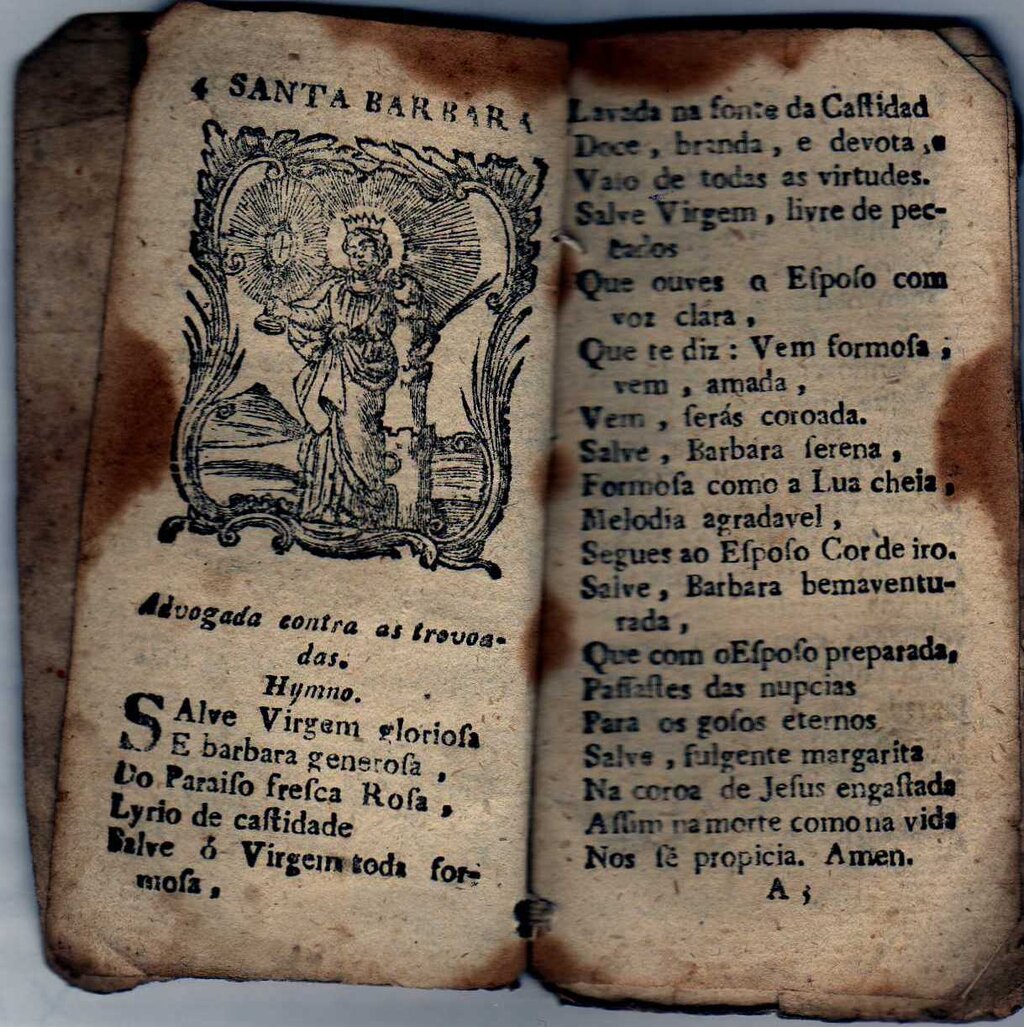 4 SANTA BARBARA
Advogada contra as trovoa-
das.
Hymno.
SAlve Virgem gloriosa
E barbara generosa ,
Do Paraiso fresca Rosa ,
Lyrio de castidade
Salve ó Virgem toda for-
mosa ,
Lavada na fonte da Castidad
Doce , branda , e devota ,
Vaso de todas as virtudes.
Salve Virgem , livre de pec-
cados
Que ouves o Esposo com
voz clára ,
Que te diz : Vem formosa ;
vem , amada ,
Vem , serás coroada.
Salve , Barbara serena ,
Formosa como a Lua cheia ,
Melodia agradavel ,
Segues ao Esposo Cordeiro.
Salve , Barbara bemaventu-
rada ,
Que com oEsposo preparada,
Passastes das nupcias
Para os gosos eternos
Salve , fulgente margarita
Na coroa de Jesus engastada
Assim na morte como na vida
Nos sê propicia. Amen.
A 3